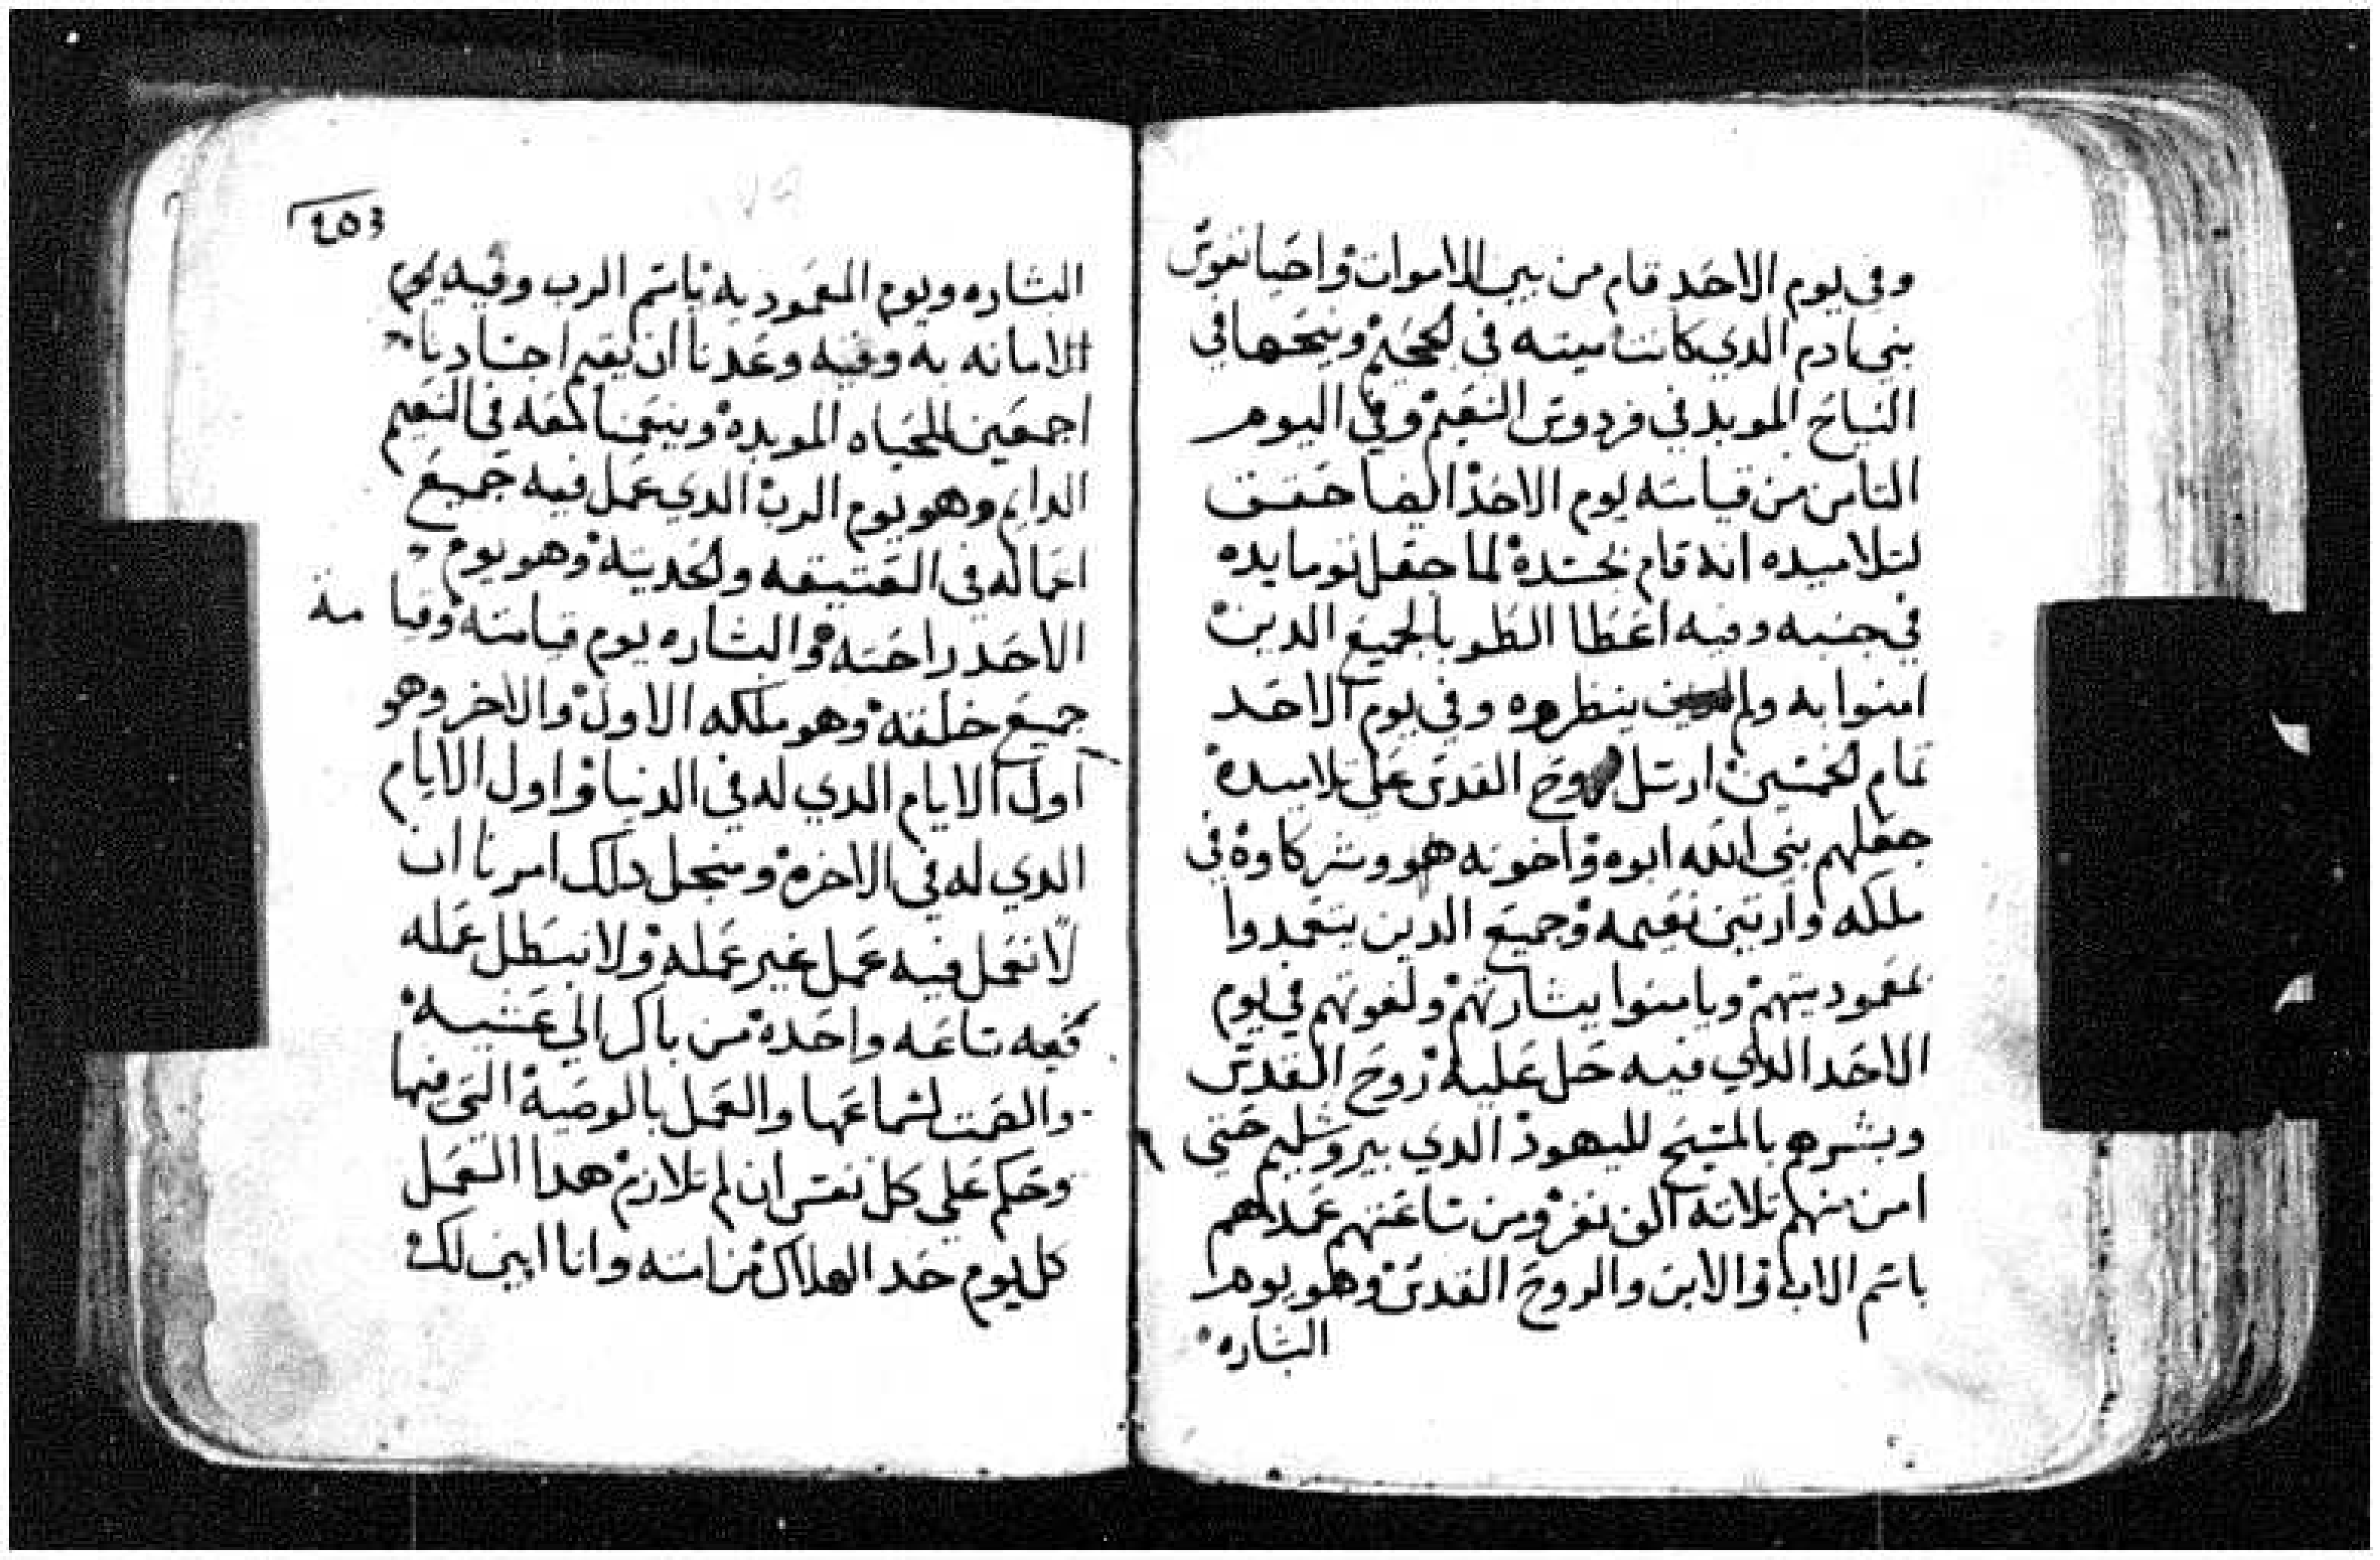 وفي يوم الاحد قام من بين الاموات واحيا نفوس
بني ادم الدي كانت ميته في الجحيم وينيحها في
النياح الموبد في فردوس النعيم وفي اليوم
التامن من قيامته يوم الاحد ايضا حقق
لتلاميده انه قام بجسده لما جعل توما يده
في جنبه وفيه اعطا الطوبا لجميع الدين
امنوا به ولم ينظروه وفي يوم الاحد
تمام الخمسين ارسل روح القدس علي تلاميده
جعلهم بني الله ابوه واخوته هو وشركاوه في
ملكه وارتين نعيمه وجميع الدين يتعمدوا
بمعموديتهم ويامنوا ببشارتهم ولغوتهم في يوم
الاحد الدي فيه حل عليه روح القدس
وبشرهم بالمسيح لليهود الدي بيروشليم حتي
امن منهم تلاتة الف نفر ومن ساعتهم عمدهم
باسم الاب والابن والروح القدس وهو يوم
البشاره
٤٥٣
البشاره ويوم المعموديه باسم الرب وفيه يوم
الامانه به وفيه وعدنا ان يقيم اجسادنا
اجمعين للحياه الموبده وينعمنا معه في النعيم
الدايم وهو يوم الرب الدي عمل فيه جميع
اعماله في العتيقه والحديته وهو يوم
الاحد راحته والبشاره يوم قيامته وقيامة
جميع خلقته وهو ملكه الاول والاخر وهو
اول الايام الدي له في الدنيا واول الايام
الدي له في الاخره ومنجل دلك امرنا ان
لا نعمل فيه عمل غير عمله ولا نبطل عمله
فيه ساعه واحده من باكر الي عشيه
والصت لسماعها والعمل بالوصية التي فيها
وحكم علي كل نفس ان لم تلازم هدا العمل
كل يوم حد الهلاك من امته وانا ابين لك